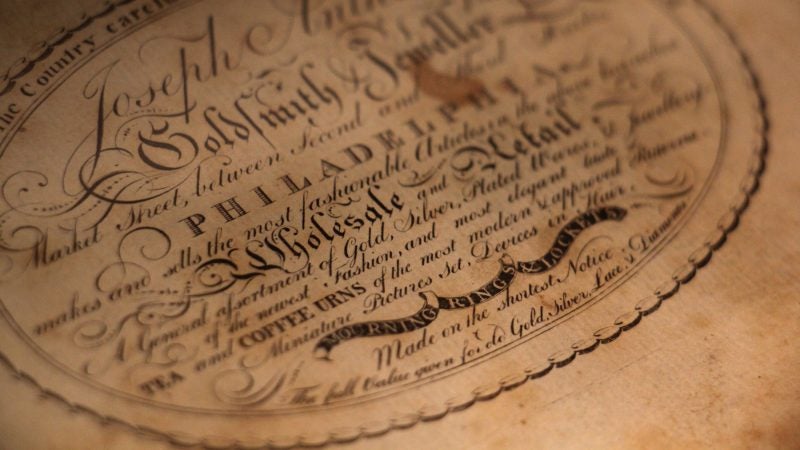 The Country
Joseph
Goldſmith & Jeweller
Market Street, between Second and
PHILADELPHIA
makes and sells the most fashionable Articles in the above
Wholesale and Retail
A General aſsortment of Gold, Silver, Plated Wares, & Jewellery
of the newest Fashion, and most elegant taste
TEA and COFFEE URNS of the most modern & approved Patterns.
Miniature Pictures Set, Devices in Hair,
MOURNING RINGS & LOCKETS
Made on the shortest Notice
The full Value given for old Gold, Silver, Lace, & Diamonds